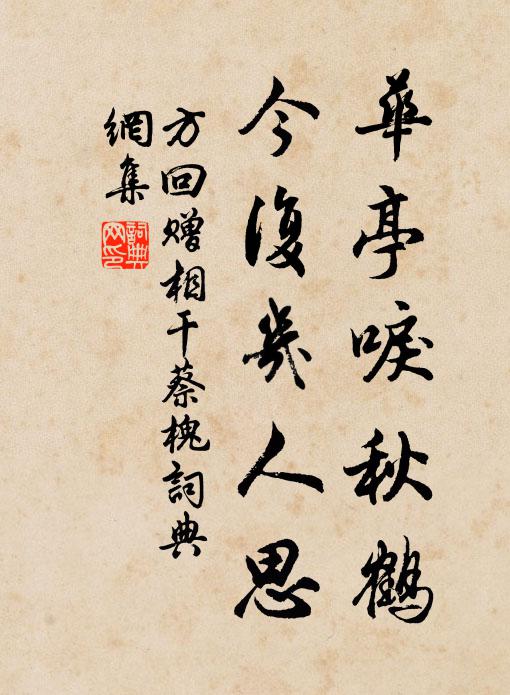 華亭唳秋鶴
今復幾人思
方回赠相干蔡槐詞典
網集
詞典
网印